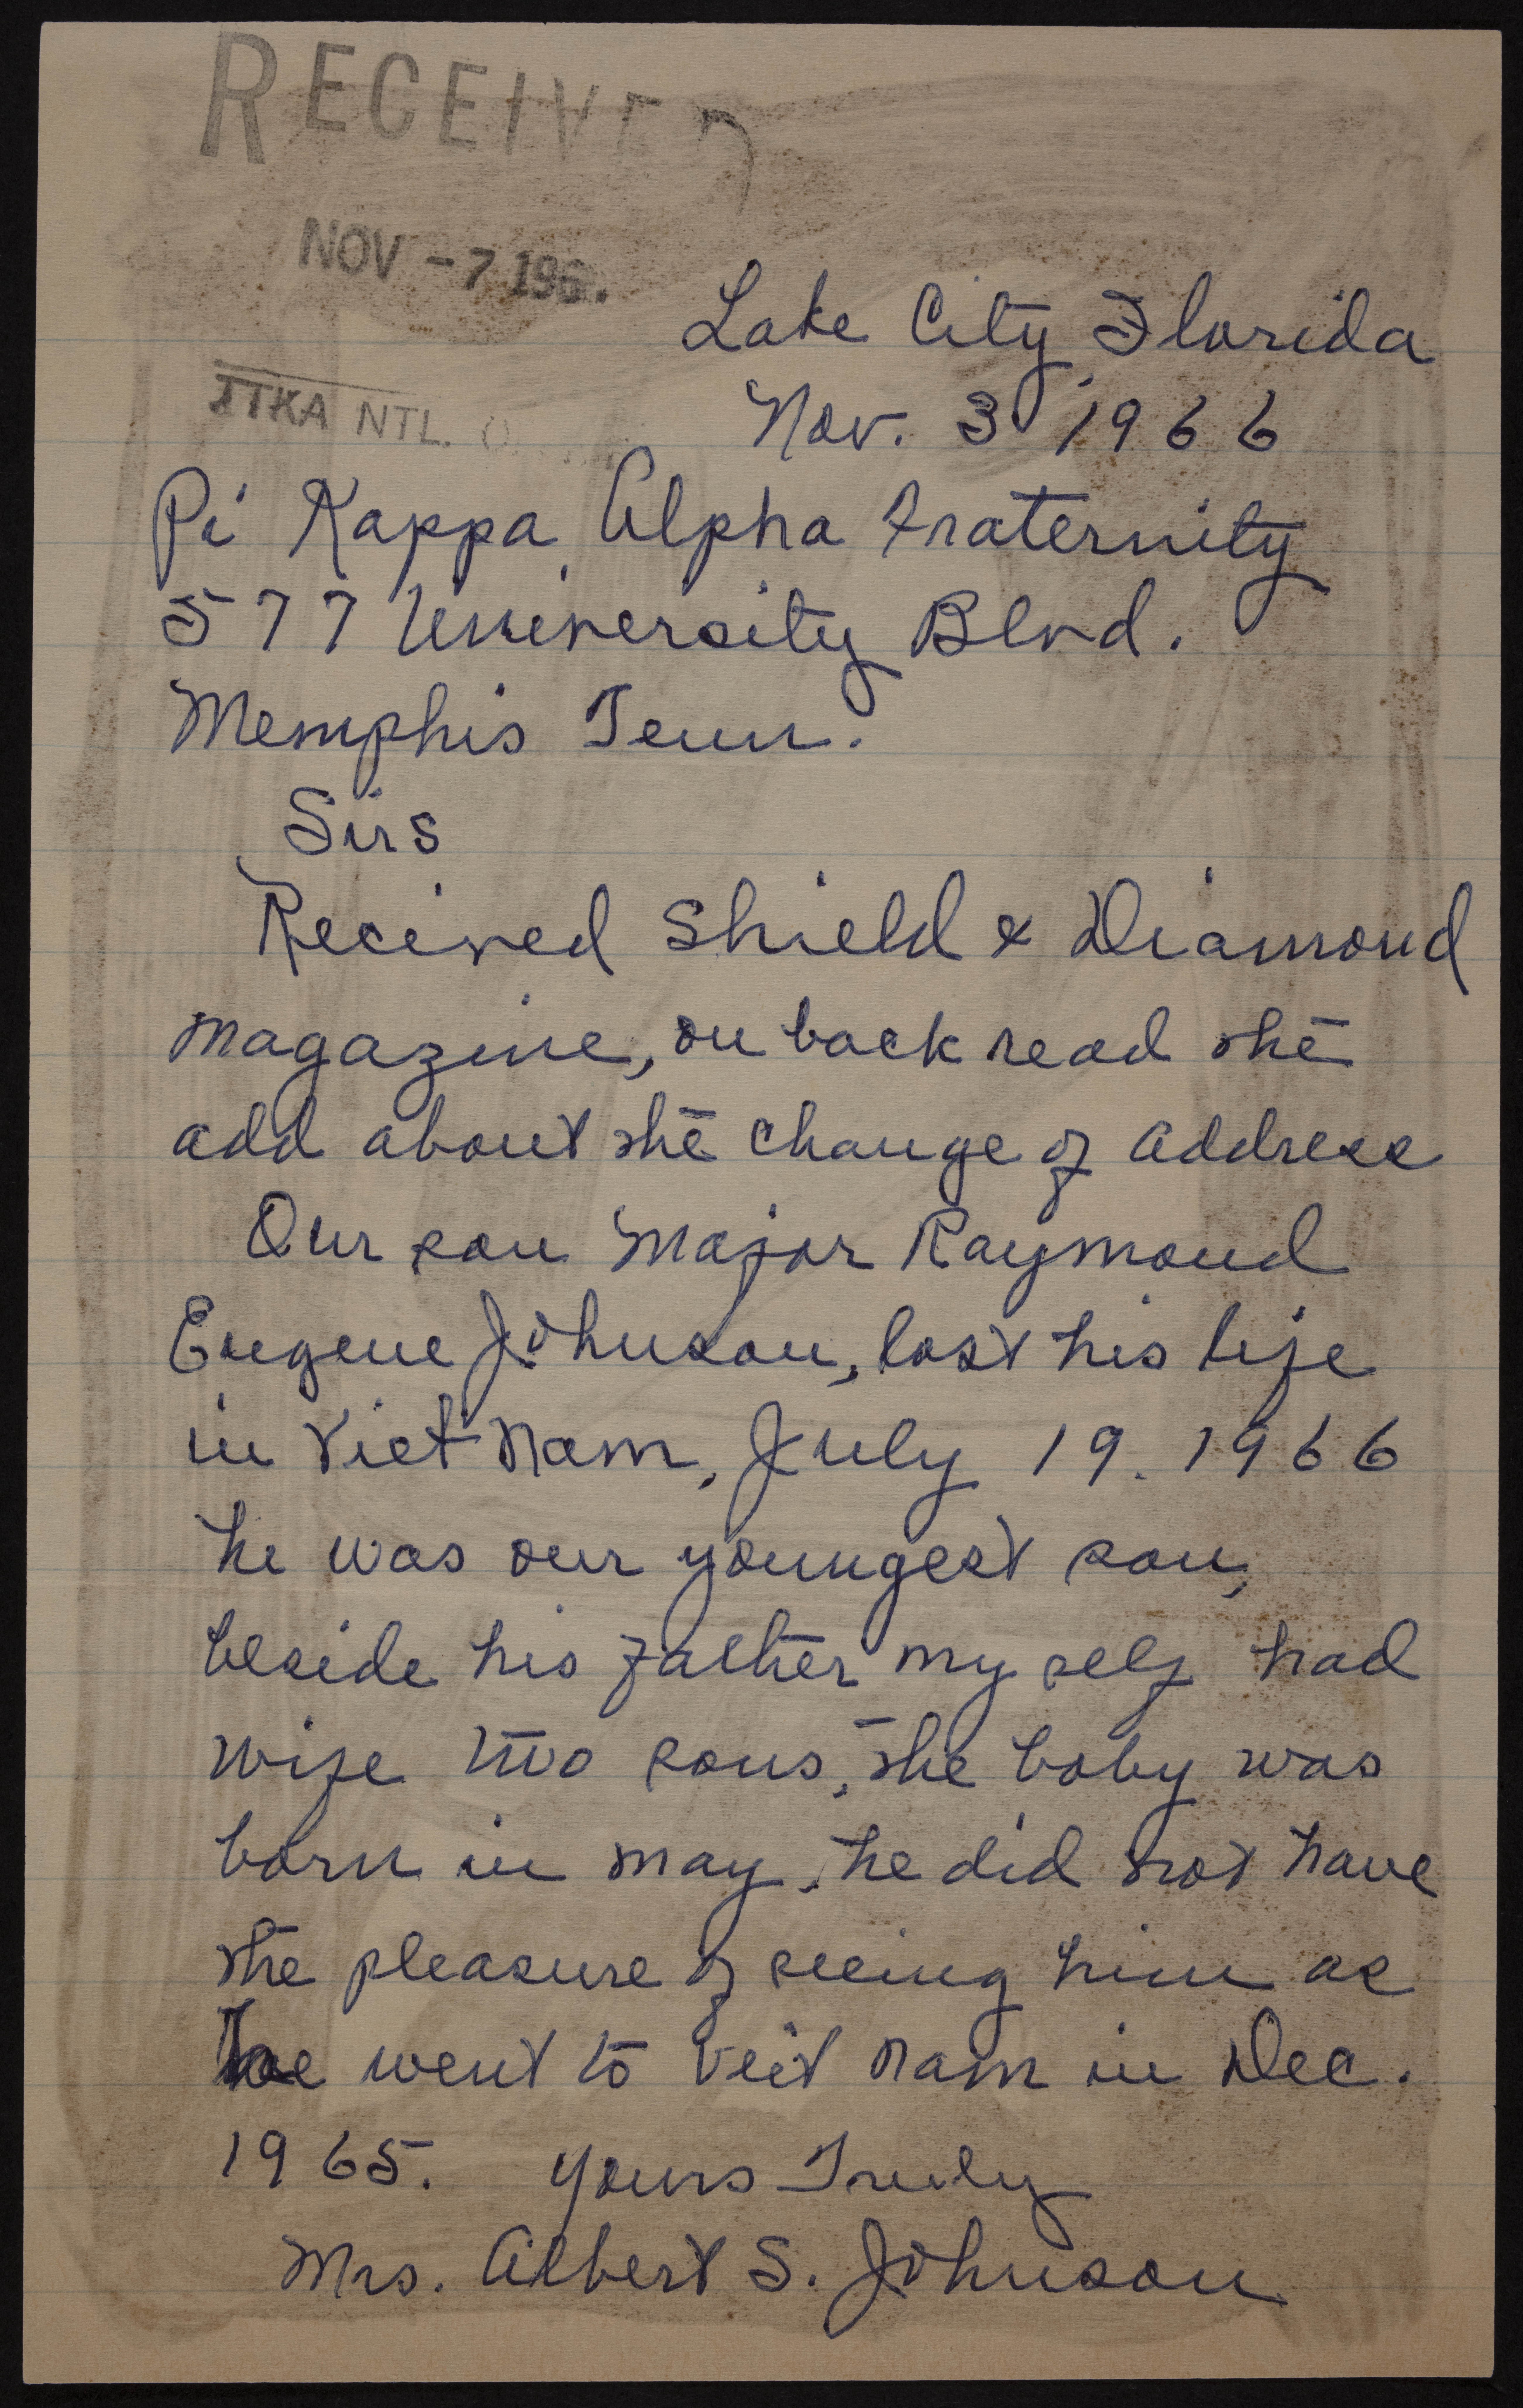 RECEIVED
NOV - 7 196.
ΠKA NTL. O
Lake City Florida
Nov. 3 1966
Pi Kappa Alpha Fraternity
577 University Blvd.
Memphis Tenn.
Sirs
Recieved Shield & Diamond
magazine, on back read the
add about the change of address
Our son Major Raymond
Eugene Johnson, lost his life
in Viet Nam, July 19. 1966
he was our youngest son,
beside his father my self had
wife two sons, the baby was
born in may, he did not have
the pleasure of seeing him as
he went to Veit nam in Dec.
1965. Yours Truly
Mrs. Albert S. Johnson